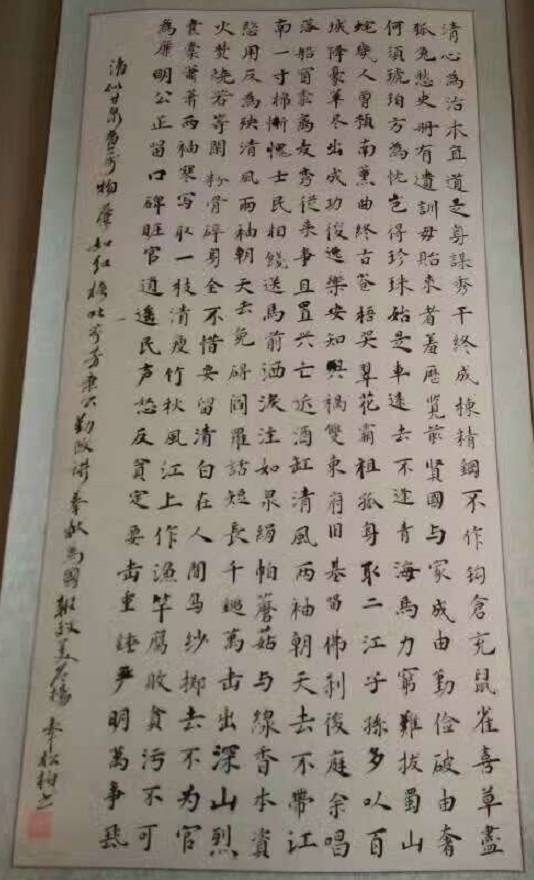 清心為治本直道是身謀秀干終成棟精鋼不作鈎倉充鼠雀喜草盡
狐兔愁史冊有遺訓毋貽來者羞歷覽前賢國与家成由勤儉破由奢
何須琥珀方為枕豈得珍珠始是車遠去不逢青海馬力窮難拔蜀山
蛇幾人曾預南薰曲終古蒼梧哭翠花霸祖孤身取二江子孫多以百
城降豪華尽出成功後逸樂安知與禍雙東府旧基留佛刹後庭余唱
落船窗黍離秀從來事且置兴亡近酒缸清風兩袖朝天去不帶江
南一寸棉慚愧士民相餞送馬前洒淚注如泉絹帕蘑菇与線香本資
用反為殃清風兩袖朝天去免碍閻羅話短長千鎚萬击出深山烈
火焚燒若等閑粉骨碎身全不惜要留清白在人間烏紗擲去不为官
囊橐蕭蕭兩袖寒写取一枝清瘦竹秋風江上作漁竿腐敗貪污不可
為廉明公正留口碑官道民声怒反貪定要击重錘严明萬事
清似甘泉如紅梅吐芬芳勤政奉献為國李松柏